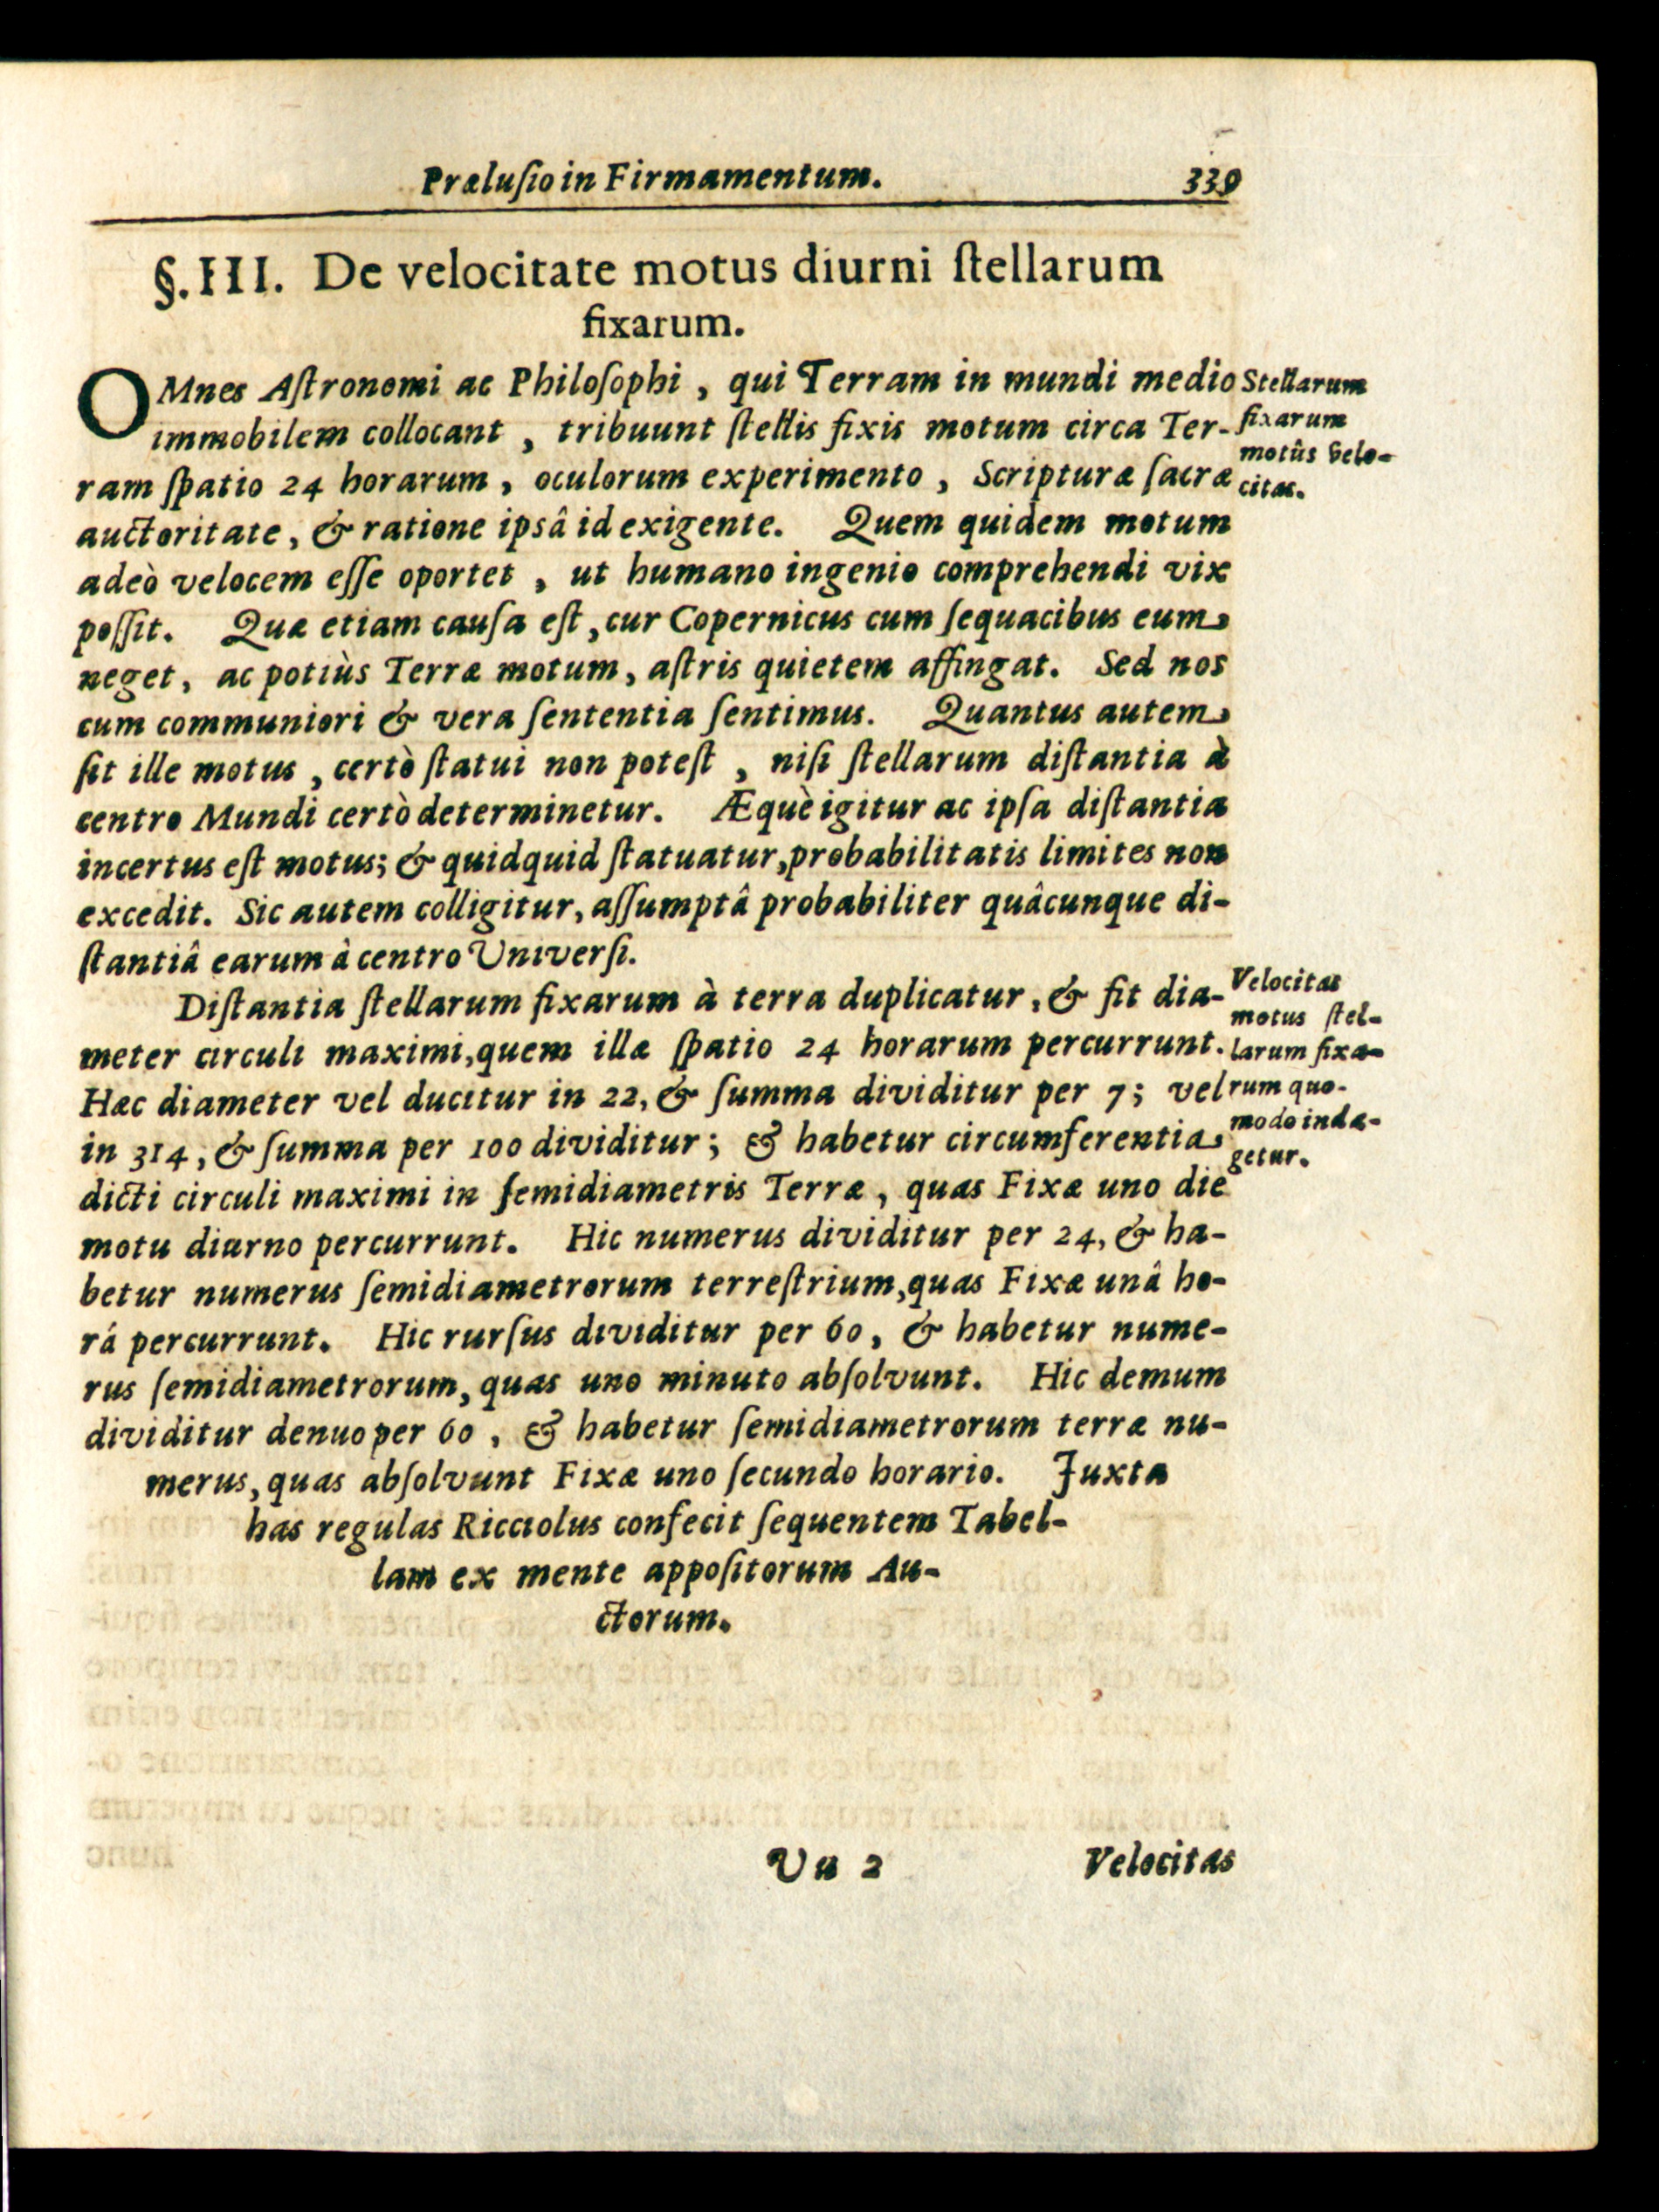 Præluſio in Firmamentum. 339
§. III. De velocitate motus diurni ſtellarum
fixarum.
OMnes Aſtronomi ac Philoſophi, qui Terram in mundi medio
immobilem collocant, tribuunt ſtellis fixis motum circa Ter-
ram ſpatio 24 horarum, oculorum experimento, Scripturæ ſacræ
auctoritate, & ratione ipsâ id exigente. Quem quidem motum
adeò velocem eſſe oportet, ut humano ingenio comprehendi vix
poſſit. Quæ etiam cauſa eſt, cur Copernicus cum ſequacibus eum
neget, ac potiùs Terræ motum, aſtris quietem affingat. Sed nos
cum communiori & vera ſententia ſentimus. Quantus autem
ſit ille motus, certò ſtatui non poteſt, niſi ſtellarum diſtantia à
centro Mundi certò determinetur. Æquè igitur ac ipſa diſtantia
incertus eſt motus; & quidquid ſtatuatur, probabilitatis limites non
excedit. Sic autem colligitur, aſſumptâ probabiliter quâcunque di-
ſtantiâ earum â centro Univerſi.
Stellarum
fixarum
motûs velo-
citas.
Diſtantia ſtellarum fixarum à terra duplicatur, & fit dia-
meter circuli maximi, quem illæ ſpatio 24 horarum percurrunt.
Hæc diameter vel ducitur in 22, & ſumma dividitur per 7; vel
in 314, & ſumma per 100 dividitur; & habetur circumferentia
dicti circuli maximi in ſemidiametris Terræ, quas Fixæ uno die
motu diurno percurrunt. Hic numerus dividitur per 24, & ha-
betur numerus ſemidiametrorum terreſtrium, quas Fixæ unâ ho-
rá percurrunt. Hic rurſus dividitur per 60, & habetur nume-
rus ſemidiametrorum, quas uno minuto abſolvunt. Hic demum
dividitur denuo per 60, & habetur ſemidiametrorum terræ nu-
merus, quas abſolvunt Fixæ uno ſecundo horario. Juxta
has regulas Ricciolus confecit ſequentem Tabel-
lam ex mente appoſitorum Au-
ctorum.
Velocitas
motus ſtel-
larum fixa-
rum quo-
modo inda-
getur.
Vu 2 Velocitas